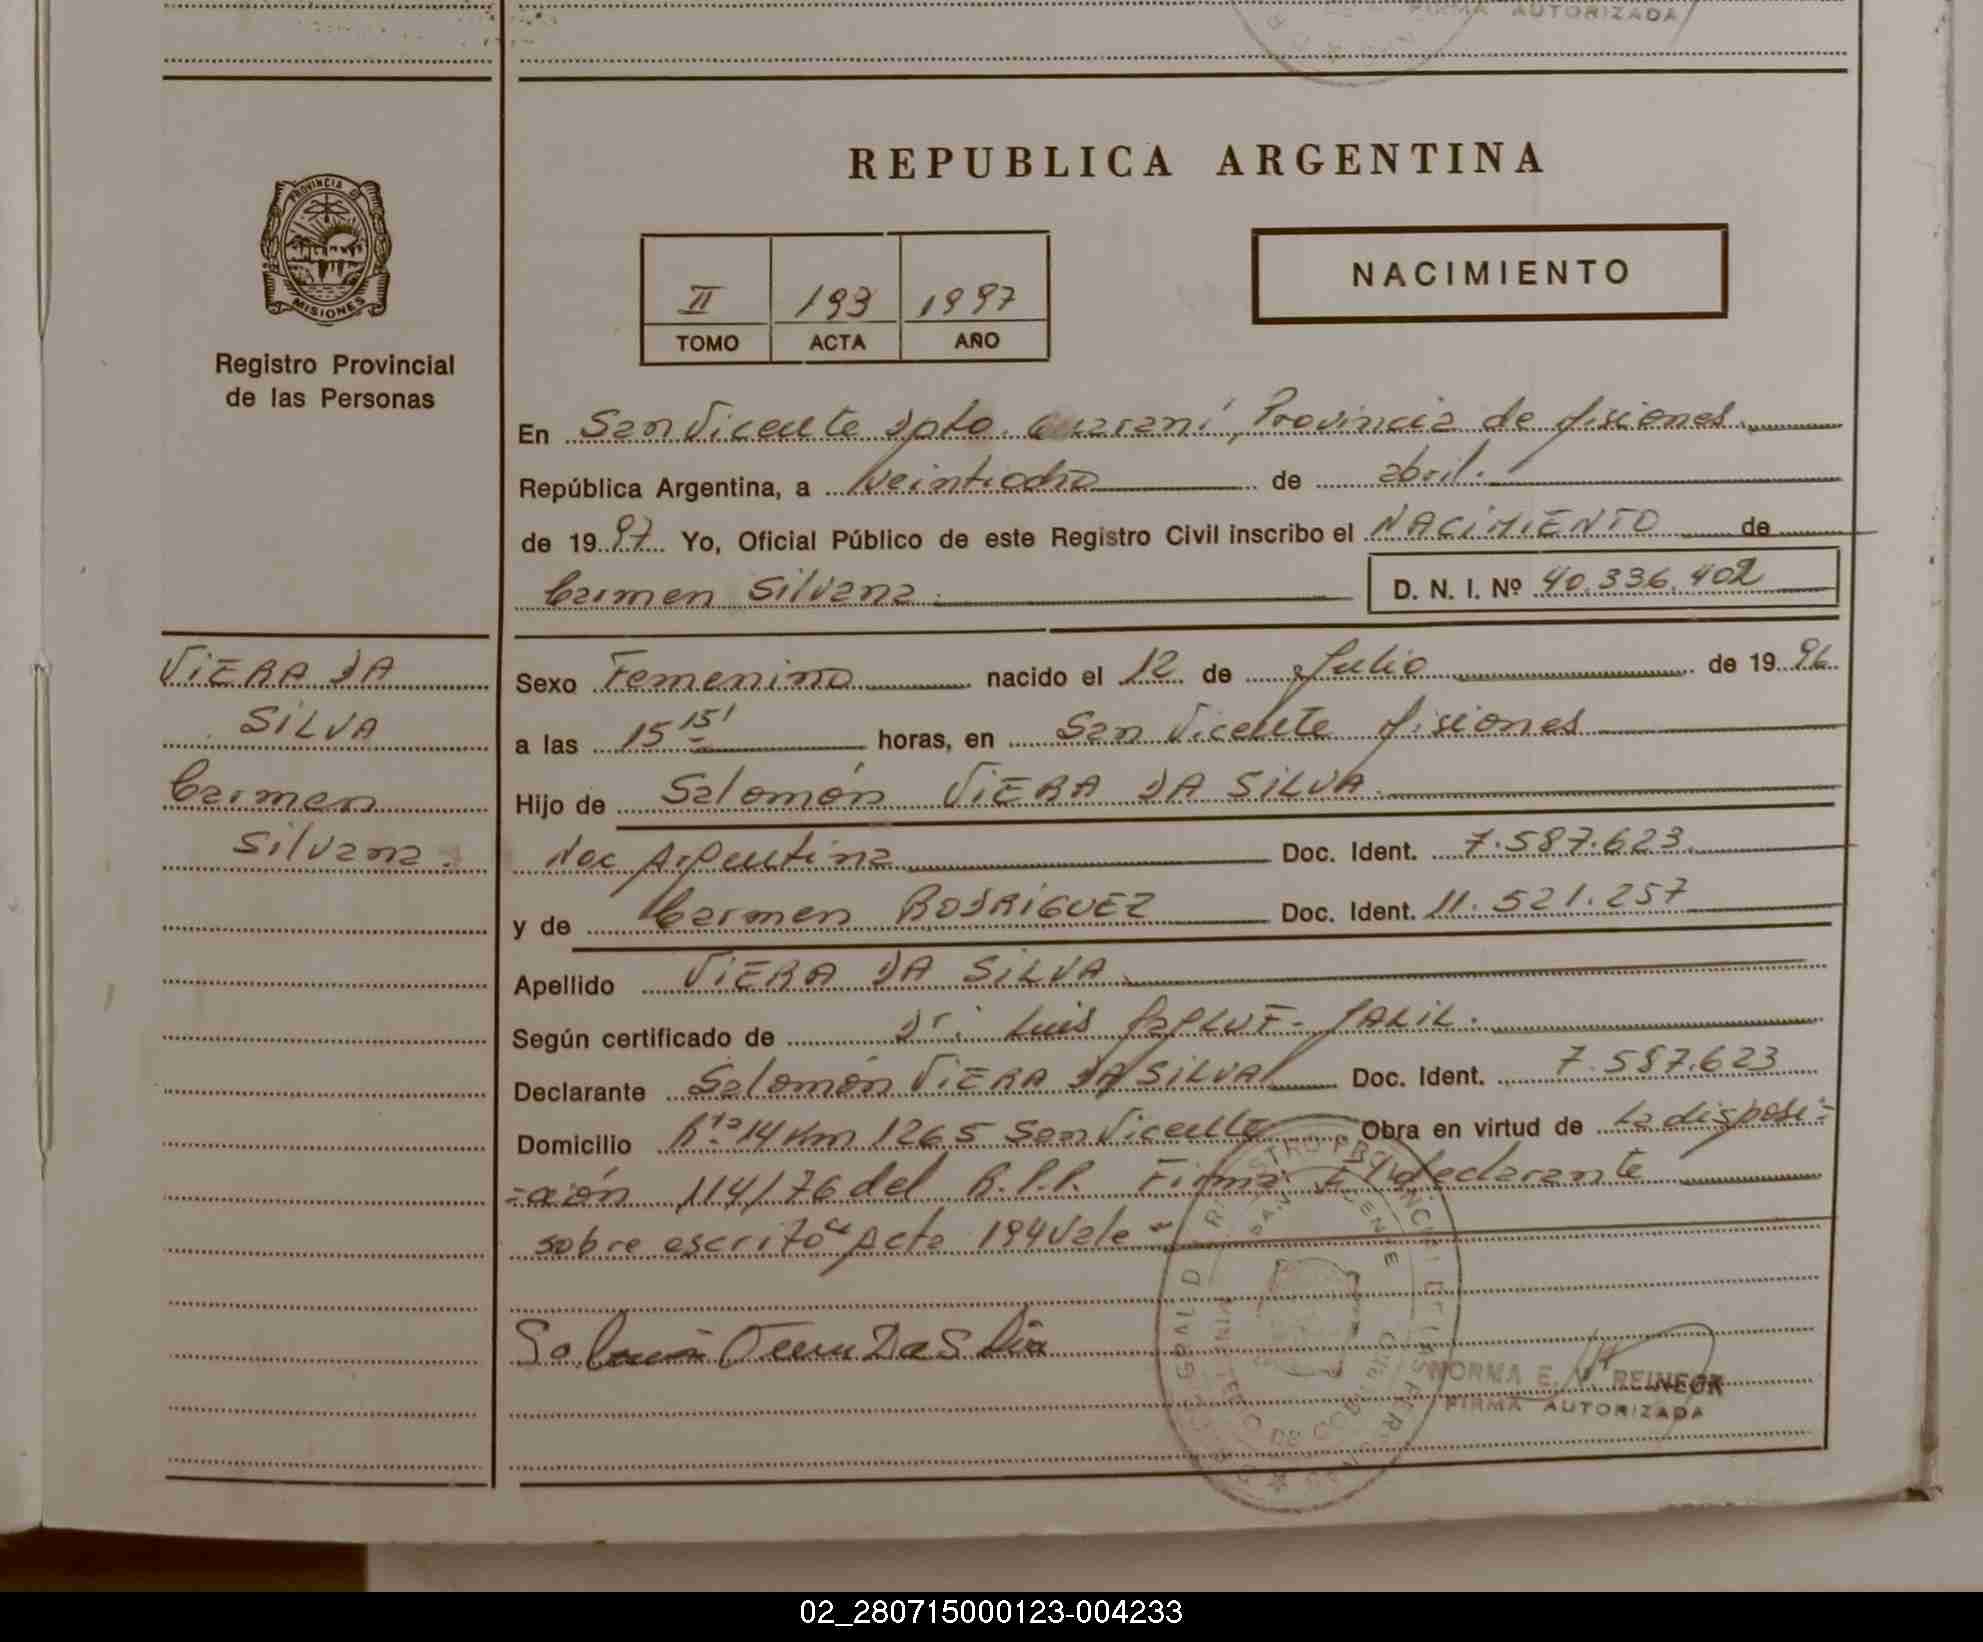 FIRMA AUTORIZADA
PROVINCIA DE
MISIONES
Registro Provincial
de las Personas
REPUBLICA ARGENTINA
NACIMIENTO
II 193 1997
TOMO ACTA AÑO
En San Vicente Dpto. Guaraní, Provincia de Misiones
República Argentina, a Veintiocho de abril.
de 1997 Yo, Oficial Público de este Registro Civil inscribo el NACIMIENTO de
Carmen Silvana D. N. I. Nº 40.336.402
VIERA DA
SILVA
Carmen
Silvana.
Sexo Femenino nacido el 12 de Julio de 1996
a las 15 15' horas, en San Vicente Misiones
Hijo de Salomón VIERA DA SILVA
Nac Argentina Doc. Ident. 7.587.623
y de Carmen RODRIGUEZ Doc. Ident. 11.521.257
Apellido VIERA DA SILVA
Según certificado de Dr. Luis JALIL.
Declarante Salomón VIERA DA SILVA Doc. Ident. 7.587.623
Domicilio Rta 14 Km 1265 San Vicente Obra en virtud de La disposi-
-ción 114/76 del R.P.P. Firma El declarante
sobre escrito Acta 194 Vale
NORMA E. V. REINECK
FIRMA AUTORIZADA
02_280715000123-004233